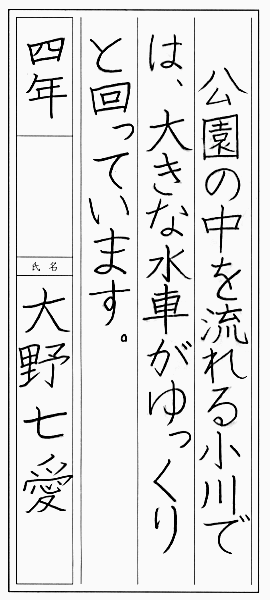 公園の中を流れる小川で
は、大きな水車がゆっくり
と回っています。
四年
氏名
大野七愛